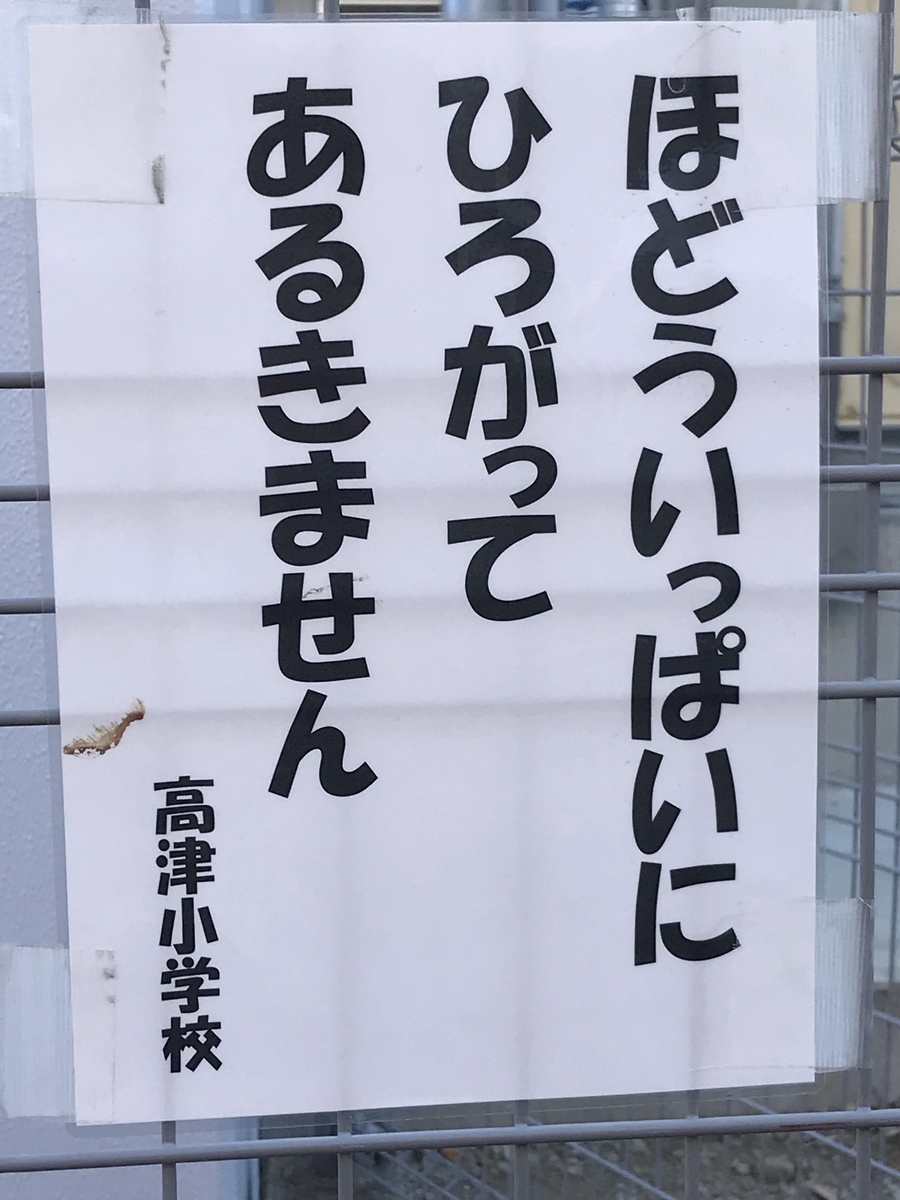 ほどういっぱいに
ひろがって
あるきません
高津小学校